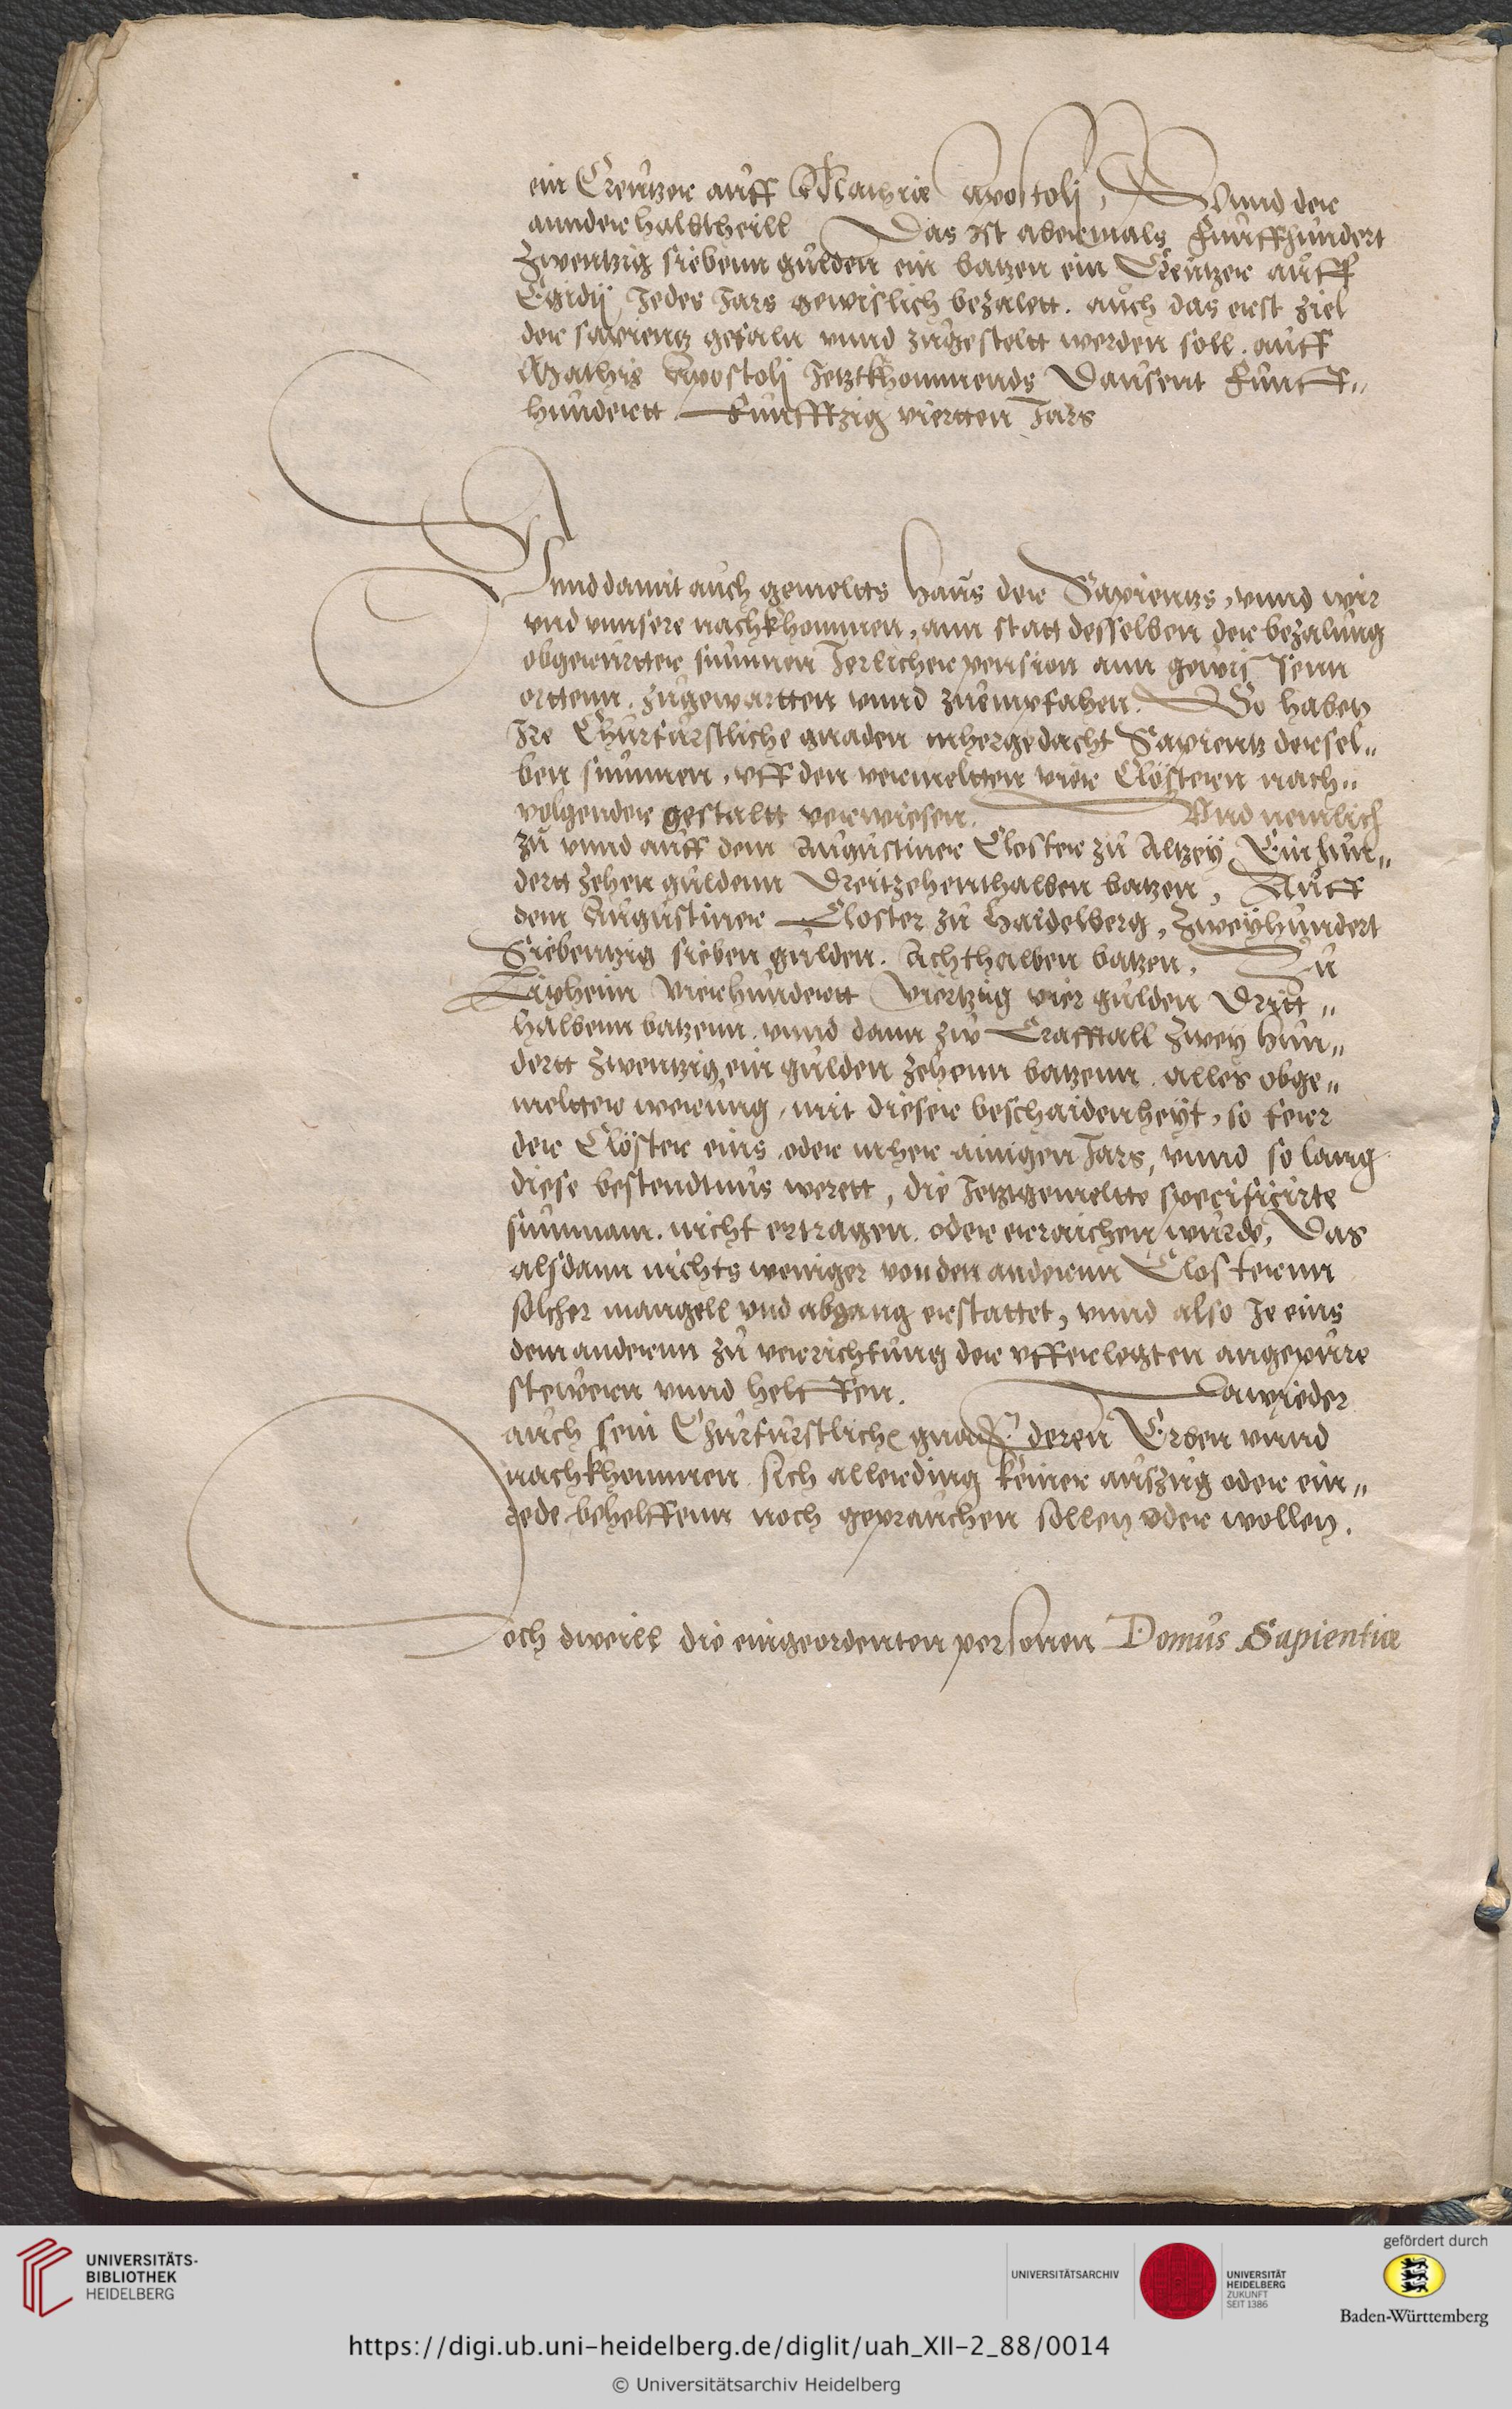 ein Creutzer auff Mathie apostolj, Vnnd der
annder halbtheill Das ist abermals Funffhundert
Zwentzig siebenn gulden ein batzen ein Creutzer auff
Egidij Jedes Jars gewislich bezalett. auch das erst ziel
der sapientz gefaln vnnd zugestelt werden soll. auff
Mathis Apostolj Jetztkhommends Dausent Funff„
hundertt Funfftzig viertten Jars
Vnnd damit auch gemeltts Haus der Sapientz, vnnd wir
vnd vnnsere nachkhommen, ann statt desselben der bezalung
obgerurtter summen Jerlicher pension ann gewissenn
orttenn. zugewartten vnnd zuempfahen. So haben
Ire Churfurstliche gnaden mehrgedacht Sapientz dersel„
ben summen, vff den vermeltten vier Clöstern nach„
volgender gestaltt verwiesen. Vnd nemlich
zu vnnd auff dem Augustiner Closter zu Altzey Einhun„
dertt zehen guldenn Dreitzehenthalben batzen, Auff
dem Augustiner Closter zu Haidelberg, Zweyhundert
Siebentzig sieben gulden. Achthalben batzen, Zu
Vierhundertt Viertzig vier gulden Dritt„
halbenn batzenn. vnnd dann zw Crafftall Zwey hun„
dertt zwentzig ein gulden zehenn batzenn. alles obge„
meltter werung, mit dieser beschaidenheyt, so ferr
der Clöster eins oder mher ainigen Jars, vnnd so lang
diese bestendtnus werett, die Jetztgemeltte specificirte
summam. nicht ertragen. oder erraichen wurde, Das
alsdann nichts weniger von den anderenn Closterenn
solcher mangell vnd abgang erstattet, vnnd also Je eins
dem anderenn zu verrichtung der vfferlegten angepure
stewern vnnd helffen. Dawieder
auch sein Churfurstliche gnad deren Erben vnnd
nachkhommen sich allerding keiner auszug oder ein„
rede behelffenn noch geprauchen sollen oder wollen.
Doch dweill die eingeordenten personen Domus Sapientiæ
UNIVERSITÄTS-
BIBLIOTHEK
HEIDELBERG
UNIVERSITÄTSARCHIV
UNIVERSITÄT
HEIDELBERG
ZUKUNFT
SEIT 1386
gefördert durch
Baden-Württemberg
https://digi.ub.uni-heidelberg.de/diglit/uah_XII-2_88/0014
© Universitätsarchiv Heidelberg